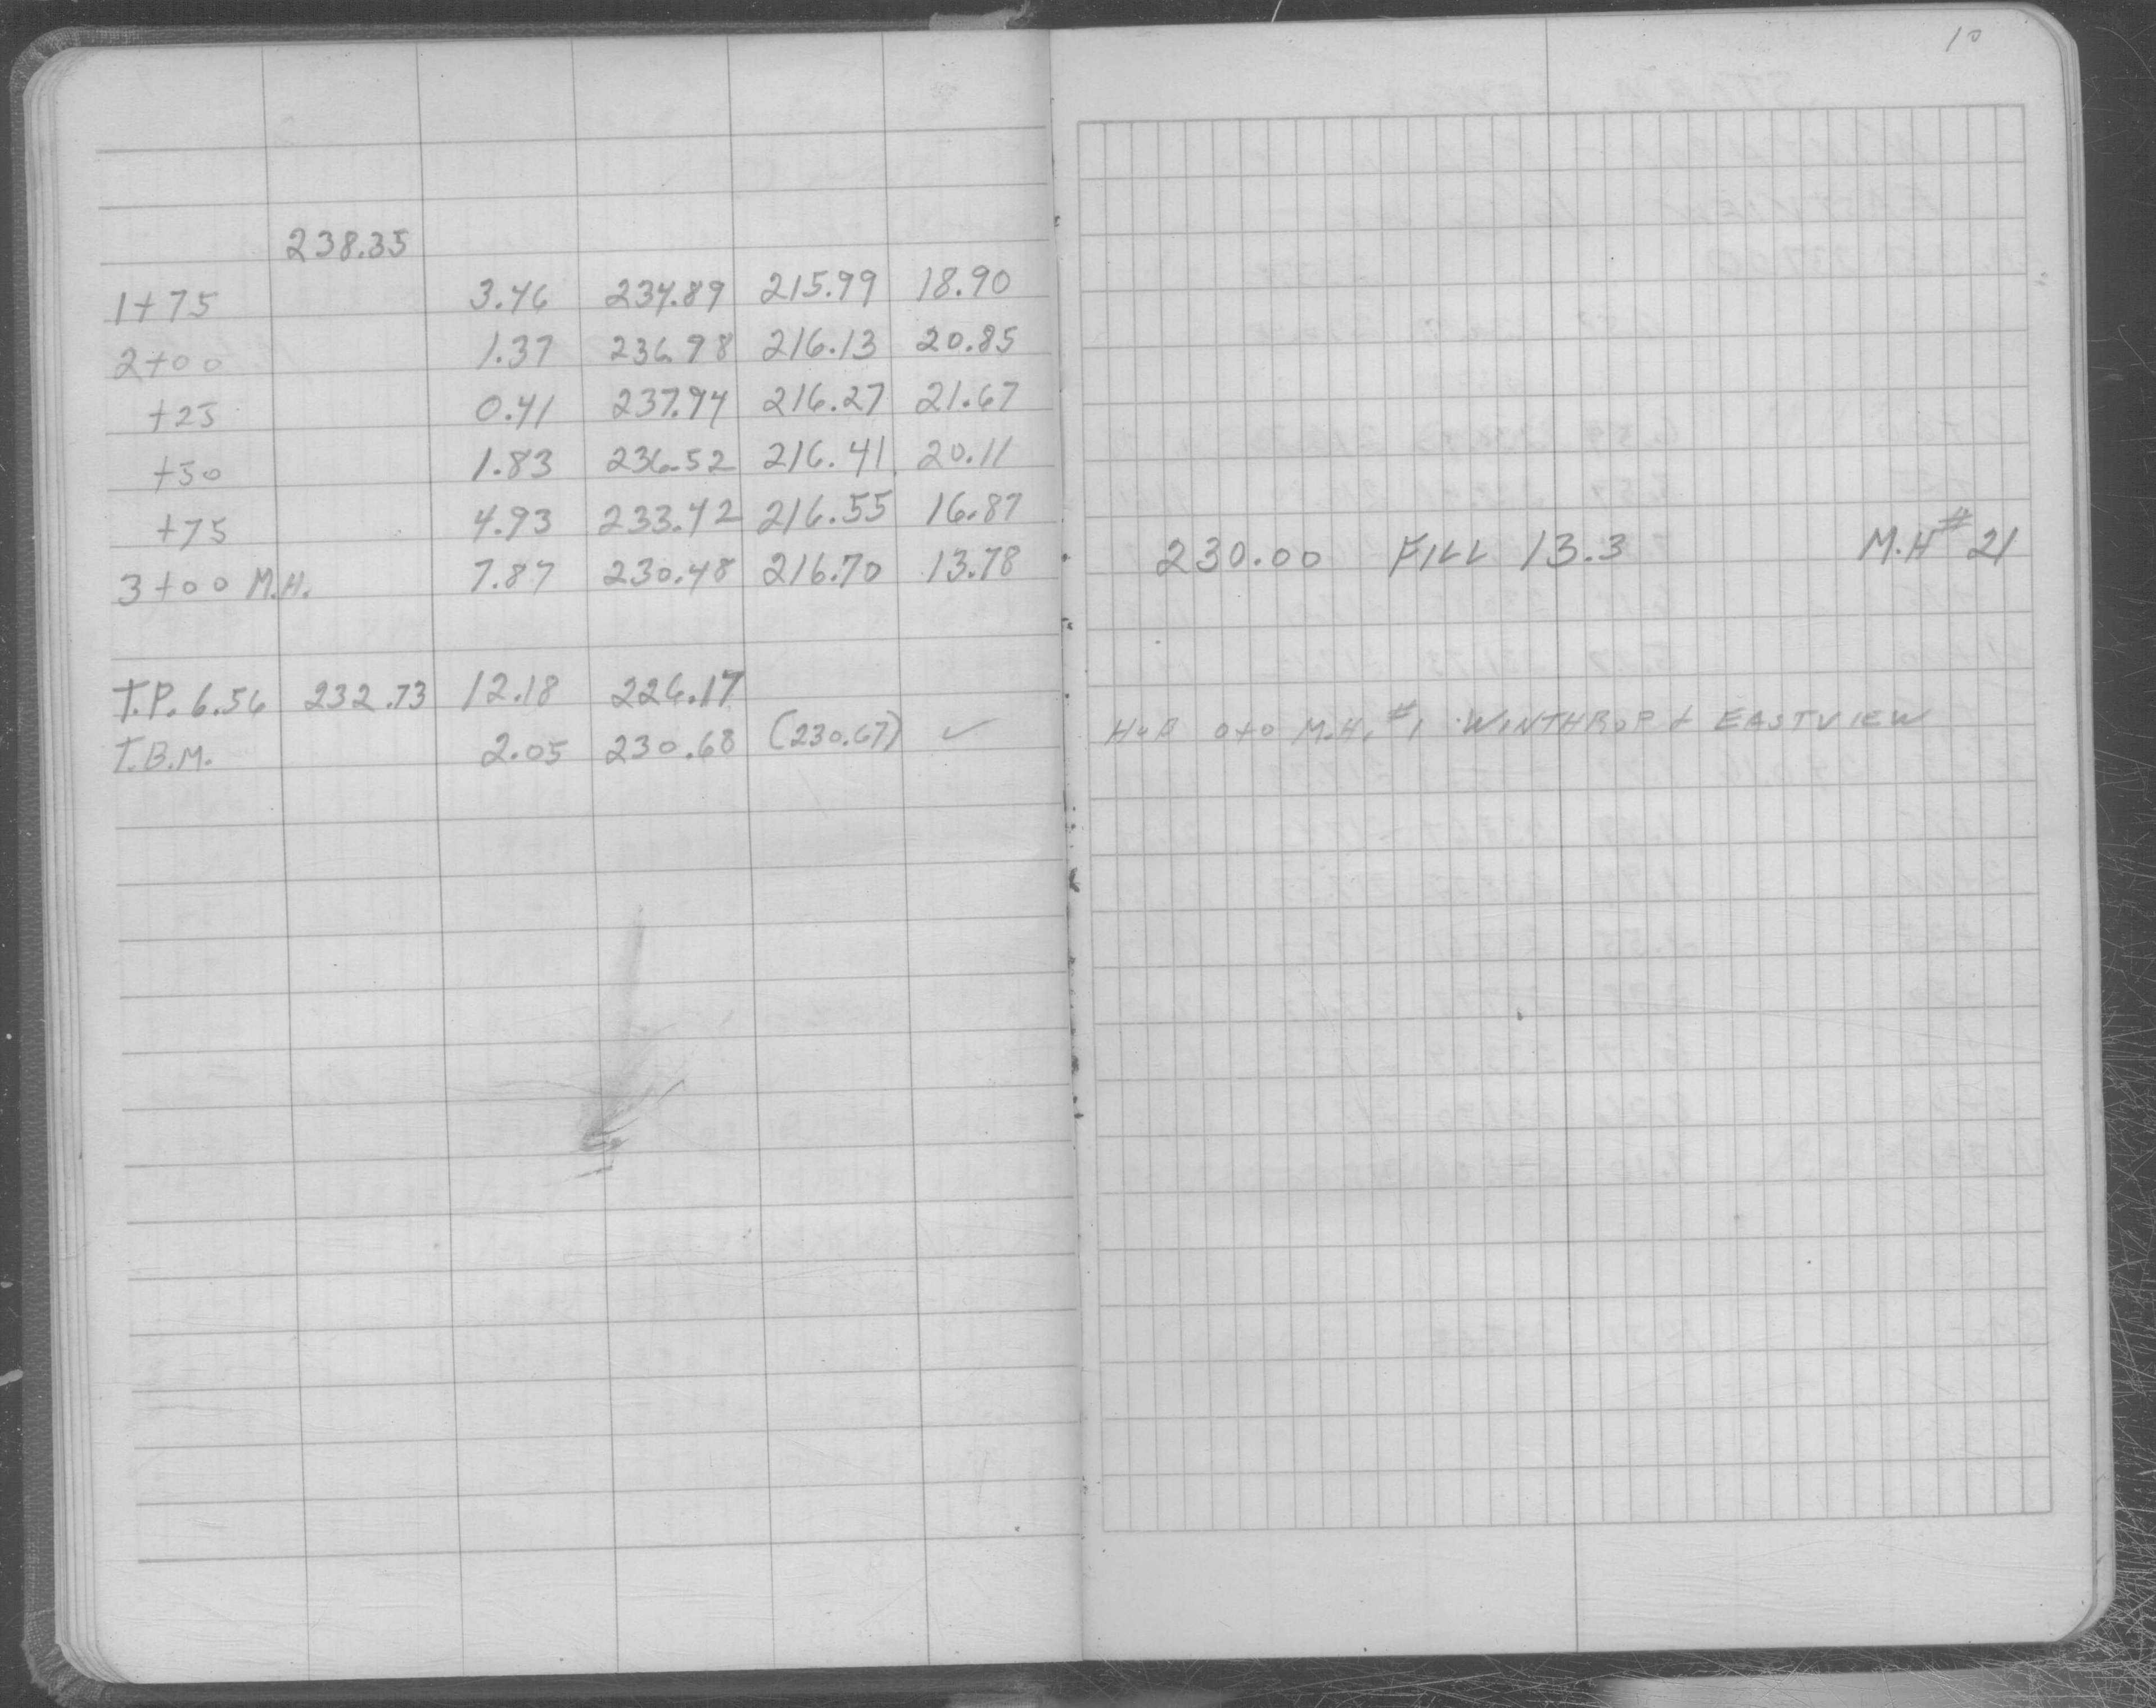 10
238.35
1+75 3.46 234.89 215.99 18.90
2+00 1.37 236.98 216.13 20.85
+25 0.41 237.94 216.27 21.67
+50 1.83 236.52 216.41 20.11
+75 4.93 233.42 216.55 16.87
3+00 M.H. 7.87 230.48 216.70 13.78 230.00 FILL 13.3 M.H # 21
T.P. 6.56 232.73 12.18 226.17
T.B.M. 2.05 230.68 (230.67) ✓ H&P 0+0 M.H. #1 WINTHROP & EASTVIEW